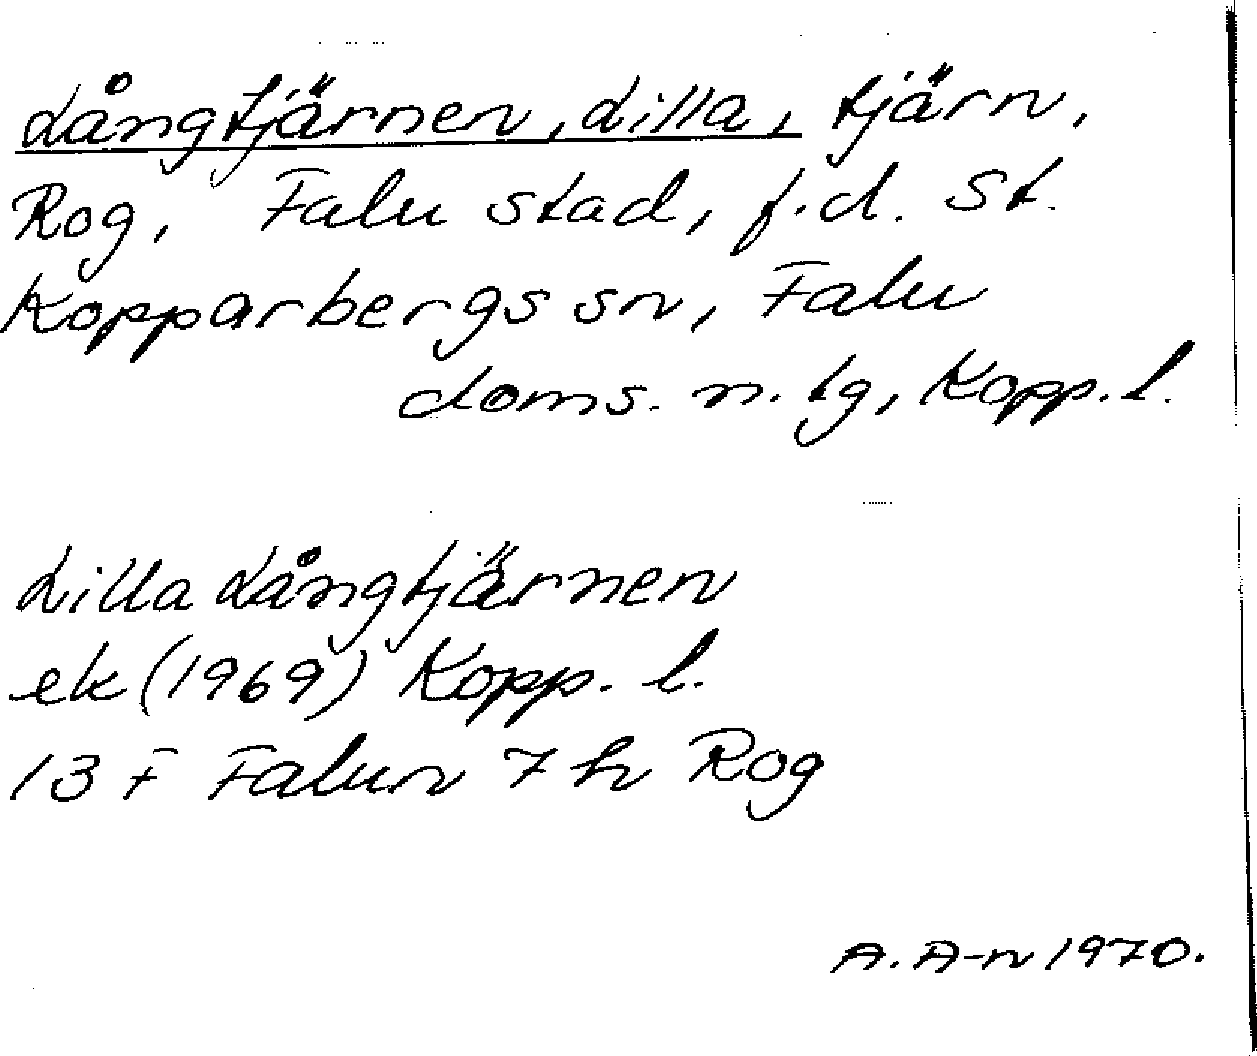 Långtjärnen, Lilla, tjärn,
Rog, Falu stad, f.d. St.
Kopparbergs sn, Falu
doms. n. tg, Kopp. l.
Lilla Långtjärnen
ek (1969) Kopp. l.
13 F Falun 7 h Rog
A. A-n 1970.